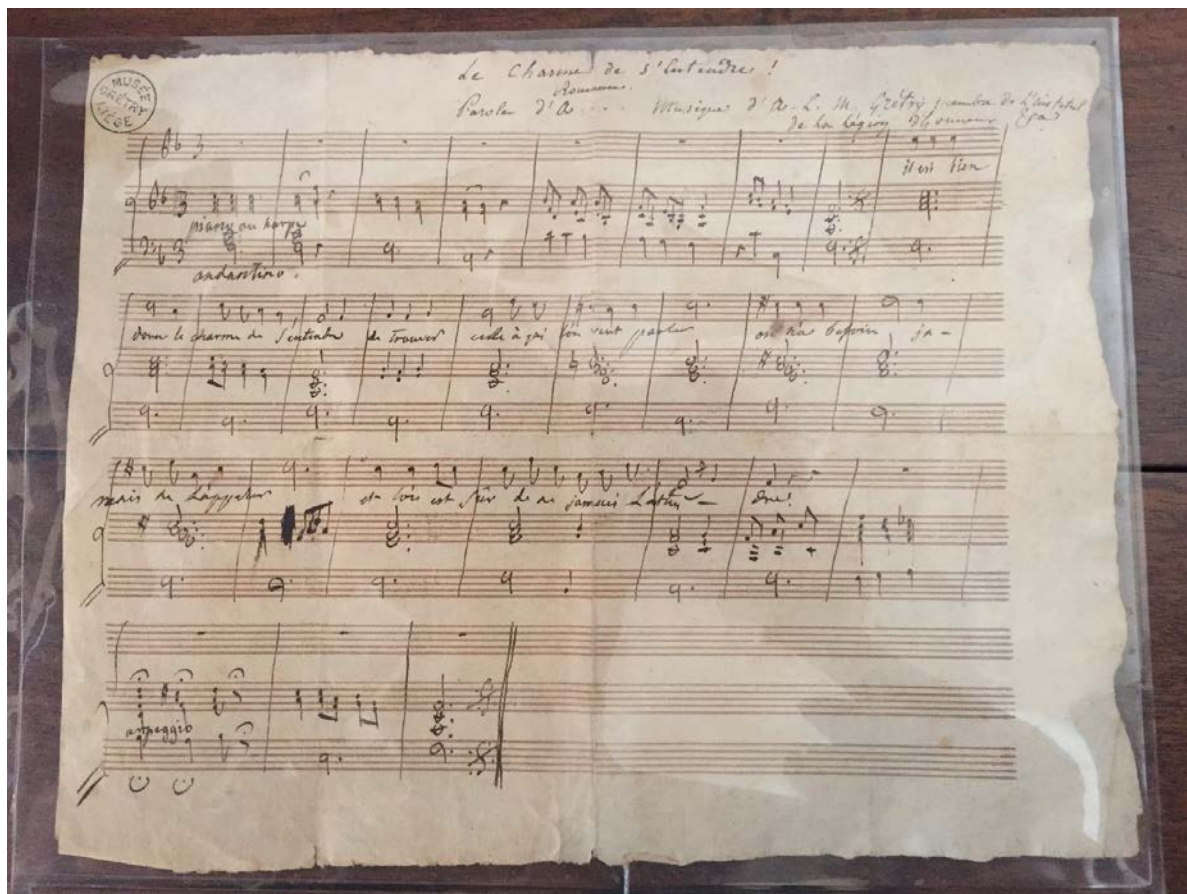 Le Charme de s'Entendre!
Romance.
Parole d'A.... Musique d'A. L. M. Grétry membre de l'institut
de la légion d'honneur
MUSÉE
GRÉTRY
LIÈGE
il est bien
piano ou harpe
andantino.
doux le charme de s'entendre de trouver celle à qui l'on veut parler on n'a besoin ja-
mais de l'appeler et l'on est sûr de ne jamais l'atten- dre!
arpeggio